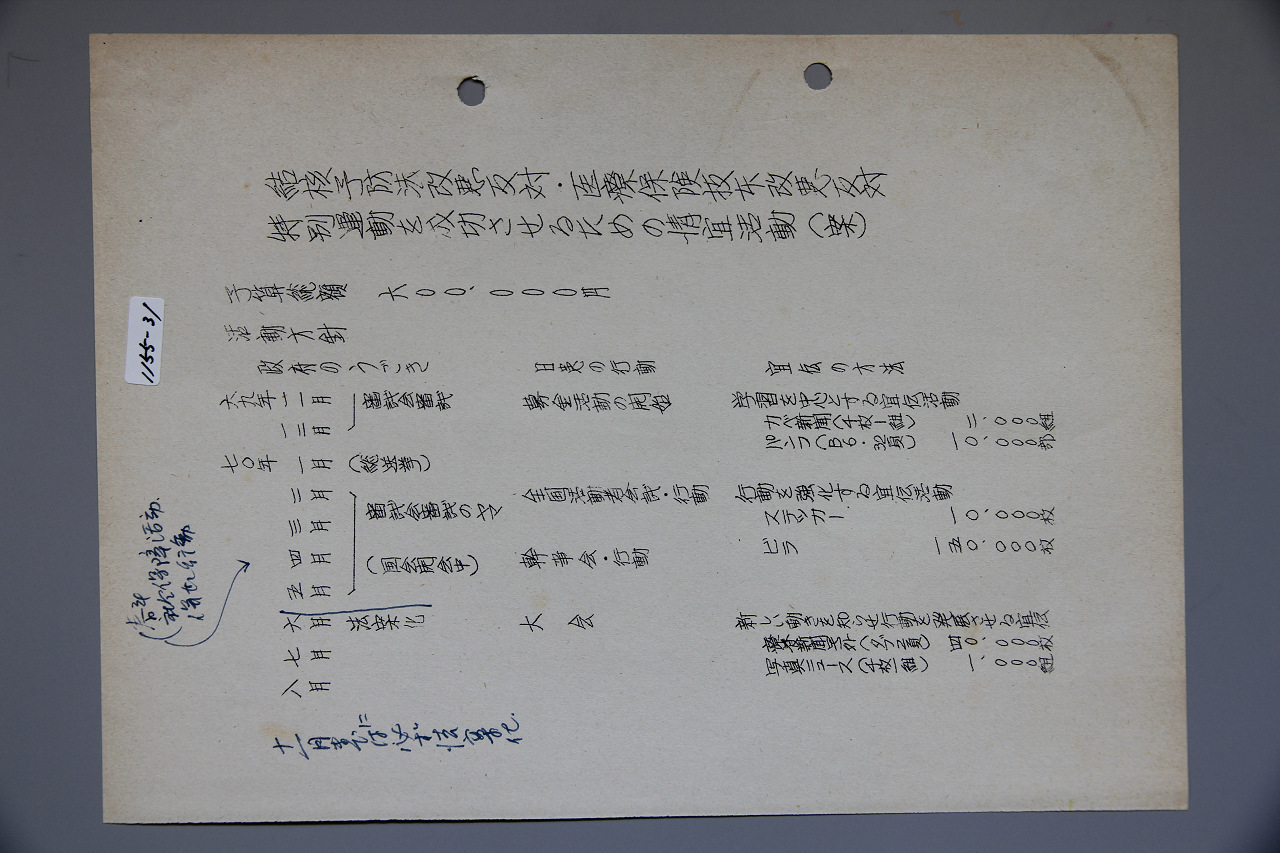 結核予防法改悪反対・医療保険抜本改悪反対
特別運動を成功させるための情宣活動(案)
予算総額 六〇〇、〇〇〇円
活動方針
政府のうごき 日患の行動 宣伝の方法
六九年一一月 審議会審議 募金活動の開始 学習を中心とする宣伝活動
カベ新聞(4枚1組) 二、〇〇〇組
一二月
パンフ(B6・32頁) 一〇、〇〇〇部
七〇年 一月 (総選挙)
二月 全国活動者会議・行動 行動を強化する宣伝活動
三月 審議会審議のヤマ ステッカー 一〇、〇〇〇枚
四月 (国会開会中) 幹事会・行動 ビラ 一五〇、〇〇〇枚
五月
六月 法案化 大会 新しい動きとあわせ行動を発展させる宣伝
療養新聞号外(タブ2頁) 四〇、〇〇〇枚
七月 写真ニュース(4枚一組) 一、〇〇〇組
八月
十一月までには必ず法案化
社会保障活動
1155-31